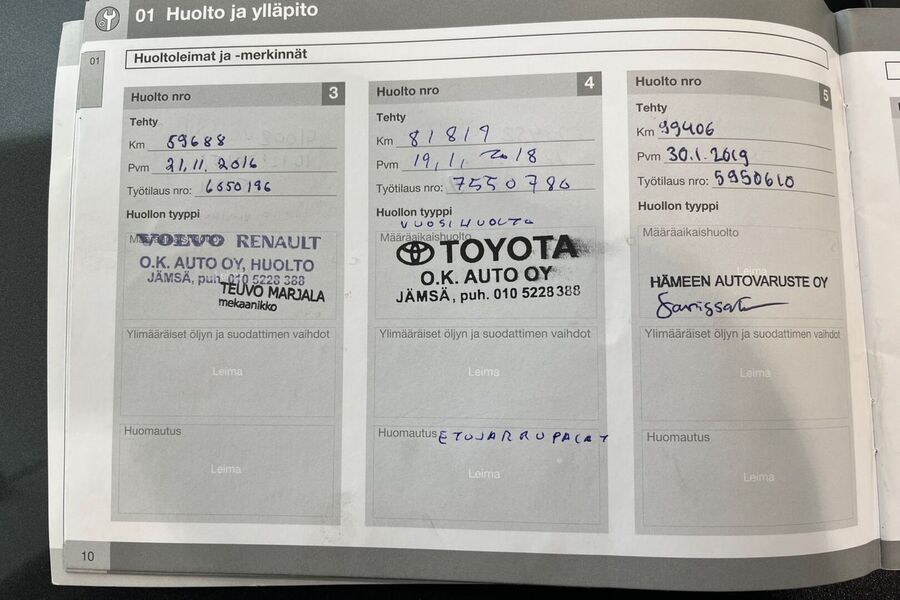 01 Huolto ja ylläpito
01
Huoltoleimat ja -merkinnät
Huolto nro 3
Tehty
Km 59688
Pvm 21.11.2016
Työtilaus nro: 6050196
Huollon tyyppi
Määräaikaishuolto
VOLVO RENAULT
O.K. AUTO OY, HUOLTO
JÄMSÄ, puh. 010 5228 388
TEUVO MARJALA
mekaanikko
Ylimääräiset öljyn ja suodattimen vaihdot
Leima
Huomautus
Leima
Huolto nro 4
Tehty
Km 81819
Pvm 19.1.2018
Työtilaus nro: 7550780
Huollon tyyppi
VUOSIHUOLTO
Määräaikaishuolto
TOYOTA
O.K. AUTO OY
JÄMSÄ, puh. 010 5228 388
Ylimääräiset öljyn ja suodattimen vaihdot
Leima
Huomautus ETUJARRUPALAT
Leima
Huolto nro 5
Tehty
Km 99406
Pvm 30.1.2019
Työtilaus nro: 5950610
Huollon tyyppi
Määräaikaishuolto
Leima
HÄMEEN AUTOVARUSTE OY
Ylimääräiset öljyn ja suodattimen vaihdot
Leima
Huomautus
Leima
10